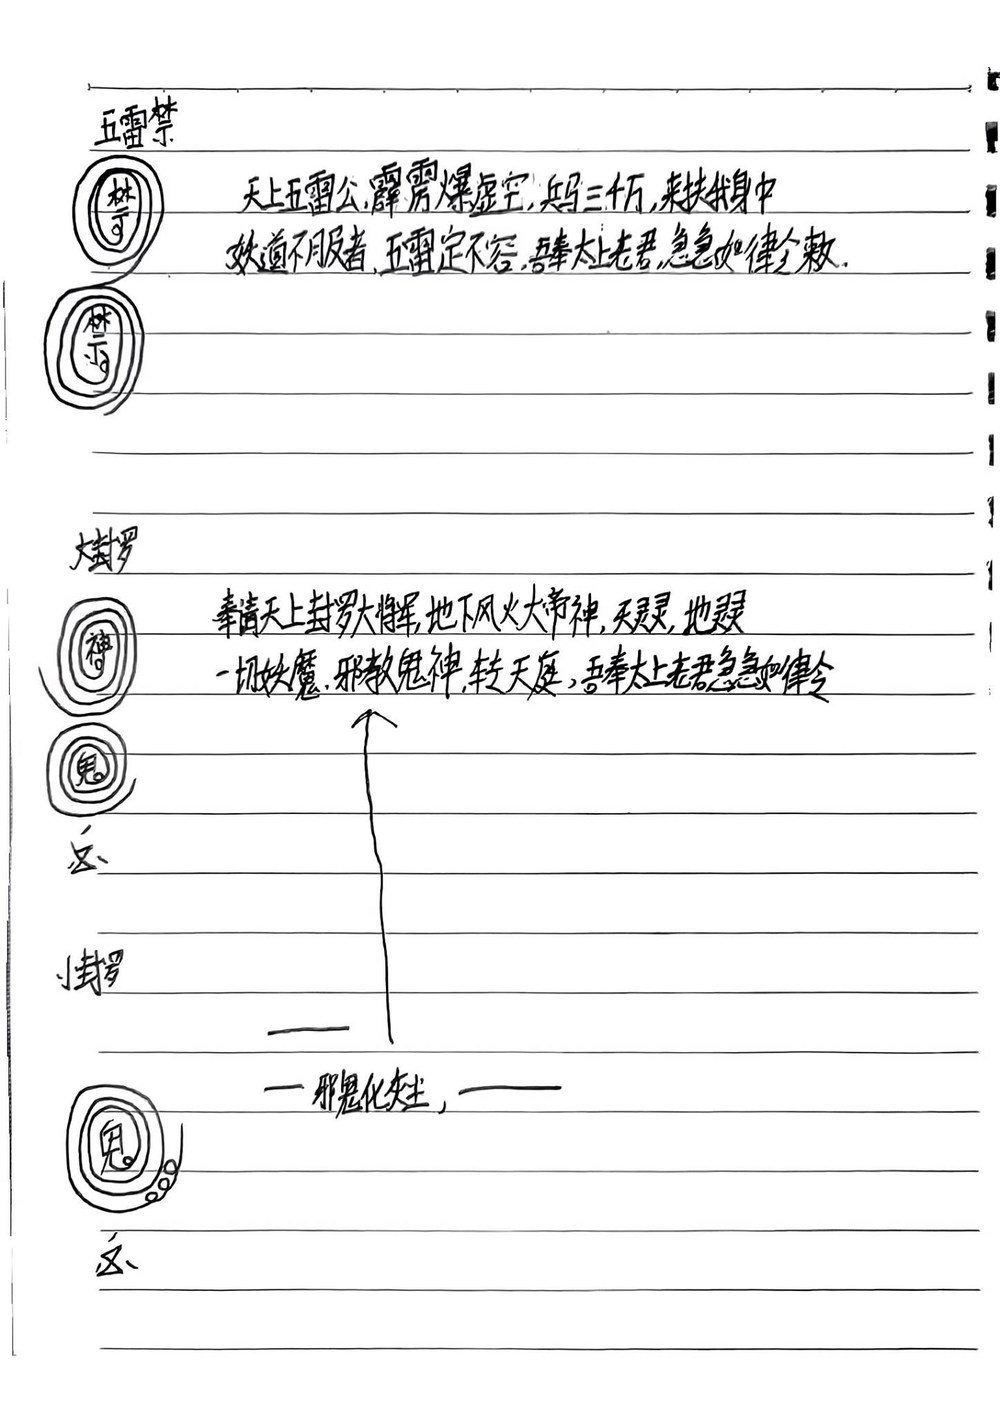 五雷禁
禁
天上五雷公,霹雳爆虚空,兵马三千万,来扶我身中
妖道不服者,五雷定不容,吾奉太上老君,急急如律令敕.
禁
大封罗
奉请天上封罗大将军,地下风火大帝神,天灵灵,地灵灵
神
一切妖魔.邪教鬼神,转天庭,吾奉太上老君急急如律令
鬼
小封罗
邪鬼化灰尘,
鬼